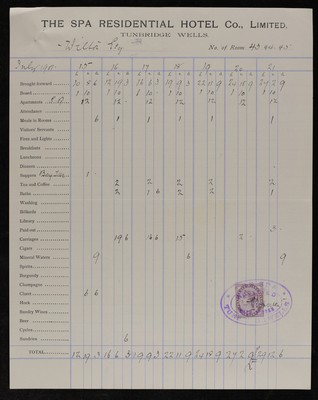 THE SPA RESIDENTIAL HOTEL Co., LIMITED.
TUNBRIDGE WELLS
No. of Room 43 44. 45
July 15 16 17 18 19 20 21
£ s d £ s d £ s d £ s d £ s d £ s d £ s d
Brought forward
Board
Apartments 12 12 12 12 12 12 12
Attendance
Meals in Rooms 6 1 1 1 1 1
Visitors' Servants
Fires and Lights
Breakfasts
Luncheons
Dinners
Suppers 1
Tea and Coffee 2 2 2 2 2
Baths 2 1 6 2 2 1
Washing
Billiards
Library
Paid out 3
Carriages 19 6 6 6 15 2
Cigars
Mineral Waters 9 6 9
Spirits
Burgundy
Champagne
Claret 6 6
Hock
Sundry Wines
Beer
Cyder
Sundries 6
TOTAL 12 19 3 16 6 3 19 9 3 22 11 9 24 18 9 27 2 9 29 12 6